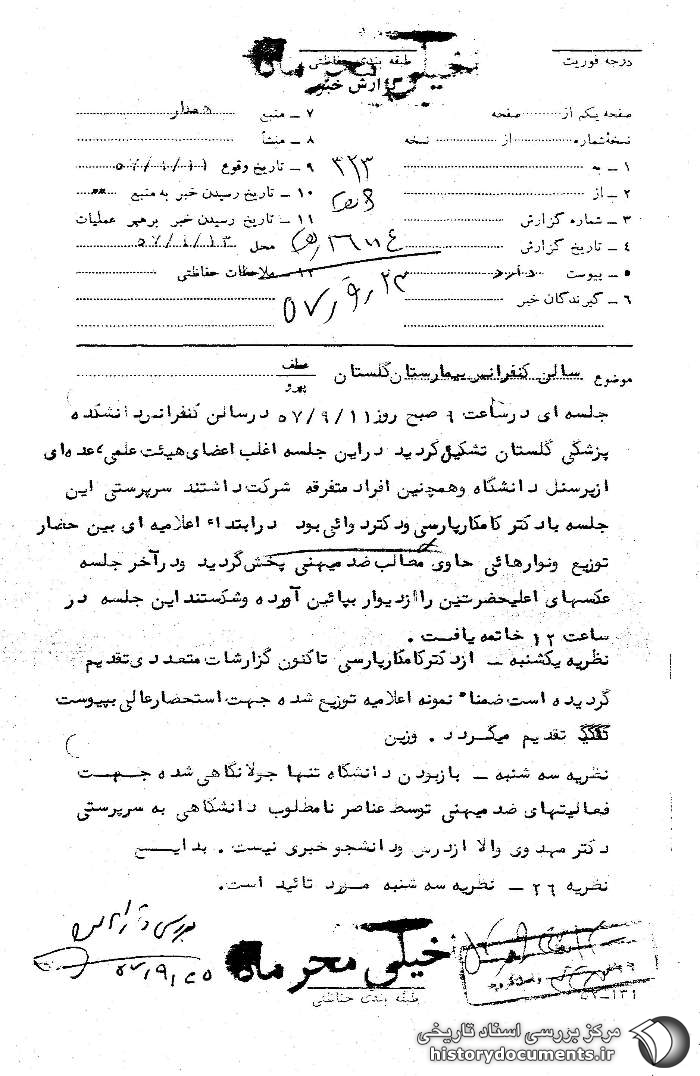 خیلی محرمانه
درجه فوریت
طبقه بندی حفاظتی
گزارش خبر
صفحه یکم از صفحه
نسخه شماره از نسخه
۱ ـ به ۳۲۳
۲ ـ از
۳ ـ شماره گزارش
۴ ـ تاریخ گزارش
۵ ـ پیوست دارد
۶ ـ گیرندگان خبر
۷ ـ منبع همدار
۸ ـ منشأ
۹ ـ تاریخ وقوع
۱۰ ـ تاریخ رسیدن خبر به منبع
۱۱ ـ تاریخ رسیدن خبر برهبر عملیات
محل
۱۲ ـ ملاحظات حفاظتی
موضوع سالن کنفرانس بیمارستان گلستان
عطف
پیرو
جلسه ای در ساعت ۹ صبح روز ۵۷/۹/۱۱ در سالن کنفرانس دانشکده
پزشکی گلستان تشکیل گردید در این جلسه اغلب اعضای هیئت علمی، عده ای
از پرسنل دانشگاه وهمچنین افراد متفرقه شرکت داشتند سرپرستی این
جلسه با دکتر کامکار پارسی ودکتر دوائی بود در ابتداء اعلامیه ای بین حضار
توزیع ونوارهائی حاوی مطالب ضد میهنی پخش گردید ودر آخر جلسه
عکسهای اعلیحضرتین را از دیوار بپائین آورده وشکستند این جلسه در
ساعت ۱۲ خاتمه یافت .
نظریه یکشنبه ـ از دکتر کامکار پارسی تاکنون گزارشات متعددی تقدیم
گردیده است ضمنا" نمونه اعلامیه توزیع شده جهت استحضار عالی بپیوست
تقدیم میگردد . وزین
نظریه سه شنبه ـ باز بودن دانشگاه تنها جولانگاهی شده جهت
فعالیتهای ضد میهنی توسط عناصر نامطلوب دانشگاهی به سرپرستی
دکتر مهدوی والا از درس ودانشجو خبری نیست . بدایع
نظریه ۲۶ ـ نظریه سه شنبه مورد تائید است.
خیلی محرمانه
طبقه بندی حفاظتی
مرکز بررسی اسناد تاریخی
historydocuments.ir